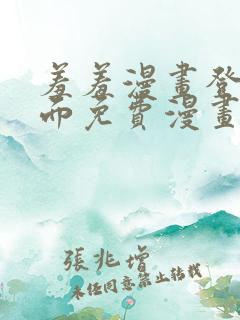 羞羞漫畫登
面免費漫畫
張兆增
未经同意禁止转载